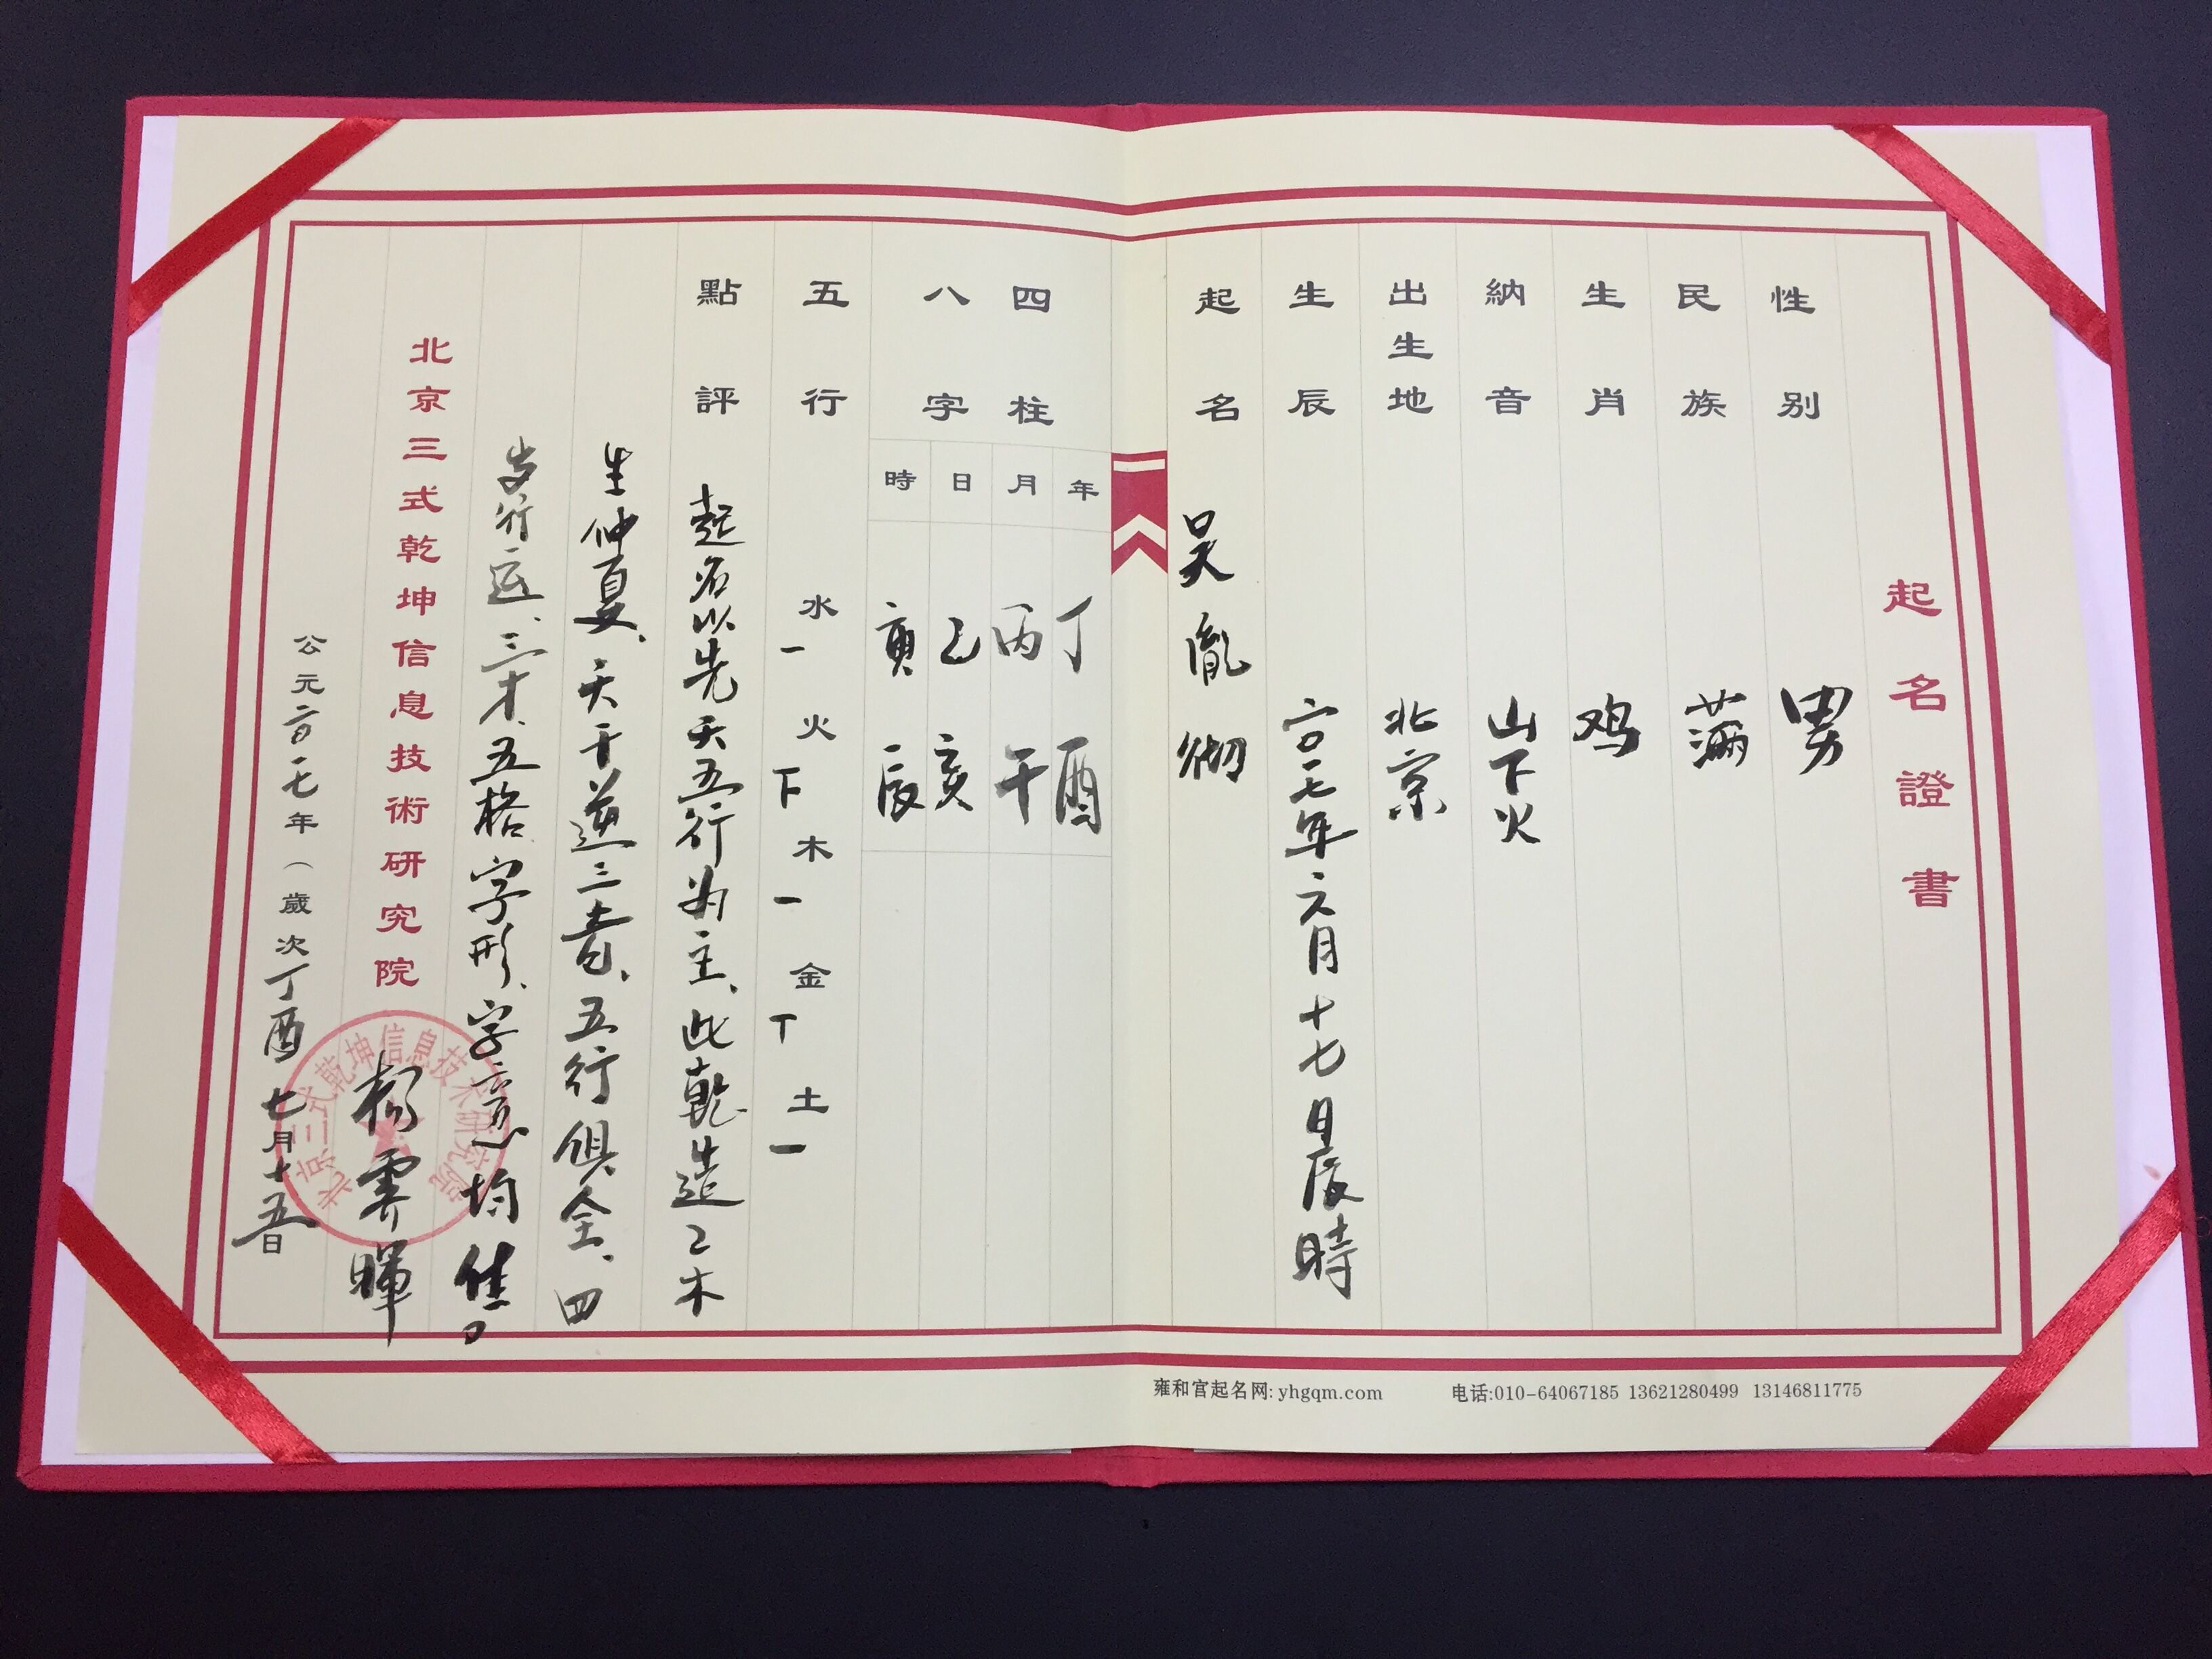 起名證書
性别 男
民族 满
生肖 鸡
納音 山下火
出生地 北京
生辰 二〇一七年六月十七日辰時
起名 吴胤
四柱八字
年 丁酉
月 丙午
日 乙亥
時 庚辰
五行 水一 火下 木一 金丅 土一
點評 起名以先天五行为主、此乾造乙木
生仲夏、天干逆三奇、五行俱全、四
岁行运、三才、五格、字形、字意均佳。
北京三式乾坤信息技術研究院
杨霁暉
公元二〇一七年（歲次丁酉 七月十五日
北京三式乾坤信息技术研究院
雍和宫起名网: yhgqm.com 电话:010-64067185 13621280499 13146811775